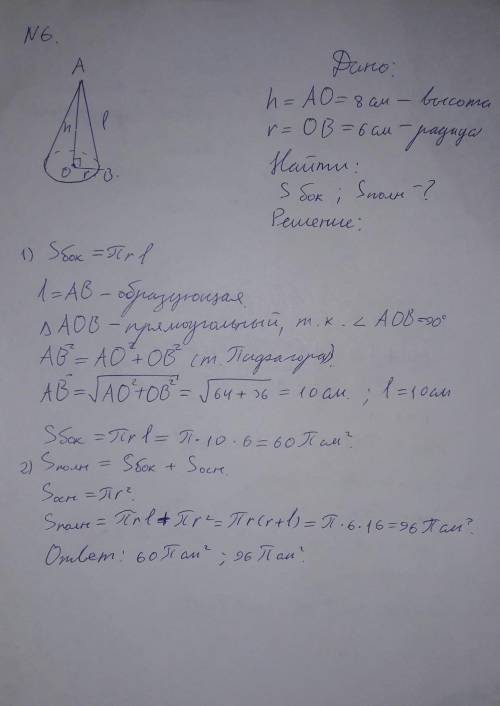 N6.
A
h
l
O
r
B.
Дано:
h = AO = 8 см – высота
r = OB = 6 см – радиус
Найти:
Sбок ; Sполн – ?
Решение:
1) Sбок = πrl
l = AB – образующая
△ AOB – прямоугольный, т.к. ∠ AOB = 90°
AB² = AO² + OB² (т. Пифагора).
AB = √AO² + OB² = √64 + 36 = 10 см. ; l = 10 см
Sбок = πrl = π · 10 · 6 = 60 π см².
2) Sполн = Sбок + Sосн.
Sосн = πr².
Sполн = πrl + πr² = πr(r+l) = π · 6 · 16 = 96 π см².
Ответ: 60 π см² ; 96 π см².